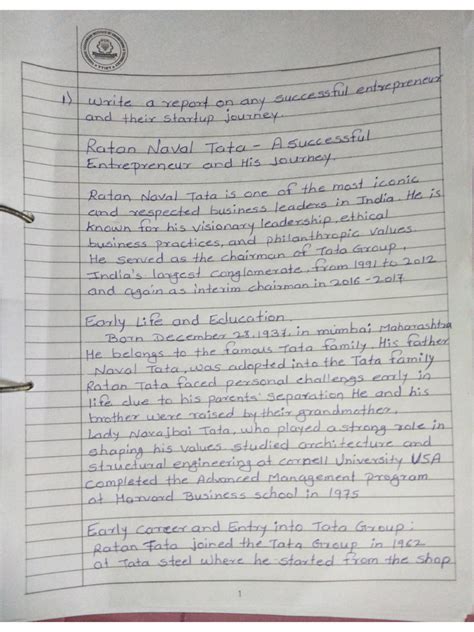 1) Write a report on any successful entrepreneur
and their startup journey.
Ratan Naval Tata - A Successful
Entrepreneur and His Journey.
Ratan Naval Tata is one of the most iconic
and respected business leaders in India. He is
known for his visionary leadership, ethical
business practices, and philanthropic values
He served as the chairman of Tata Group,
India's largest conglomerate, from 1991 to 2012
and again as interim chairman in 2016-2017
Early Life and Education.
Born December 28, 1937, in mumbai Maharashtra
He belongs to the famous Tata family. His father
Naval Tata, was adopted into the Tata family
Ratan Tata faced personal challengs early in
life due to his parents' separation He and his
brother were raised by their grandmother,
Lady Navajbai Tata, who played a strong role in
shaping his values studied architecture and
structural engineering at cornell University USA
completed the Advanced Management program
at Harvard Business school in 1975
Early Career and Entry into Tata Group:
Ratan Tata joined the Tata Group in 1962
at Tata steel where he started from the shop
1